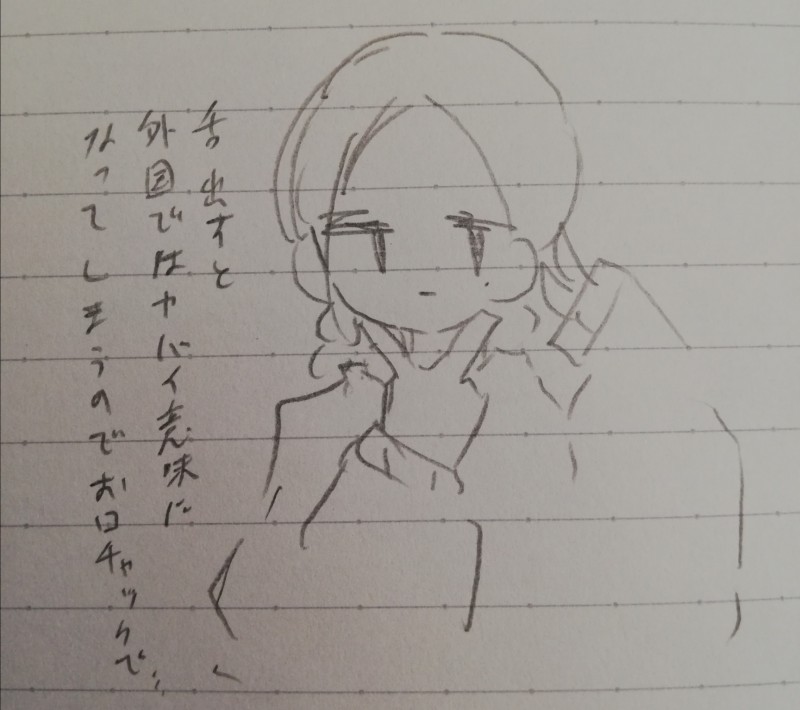 舌出すと
外国ではヤバイ意味に
なってしまうのでお口チャックで、